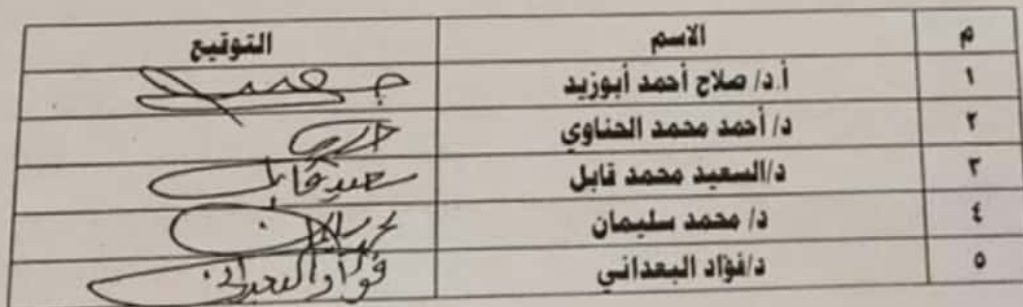 م الاسم التوقيع
١ أ.د/ صلاح أحمد أبوزيد
٢ د/ أحمد محمد الحناوي
٣ د/السعيد محمد قابل سعيد قابل
٤ د/ محمد سليمان محمد سليمان
٥ د/فؤاد البعداني فؤاد البعداني